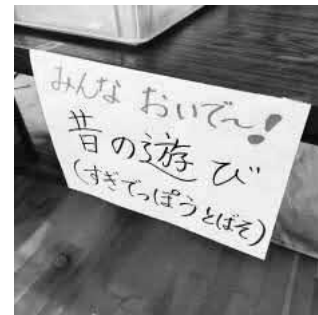 みんな おいで〜!
昔の遊び
(すぎでっぽうとばそ)